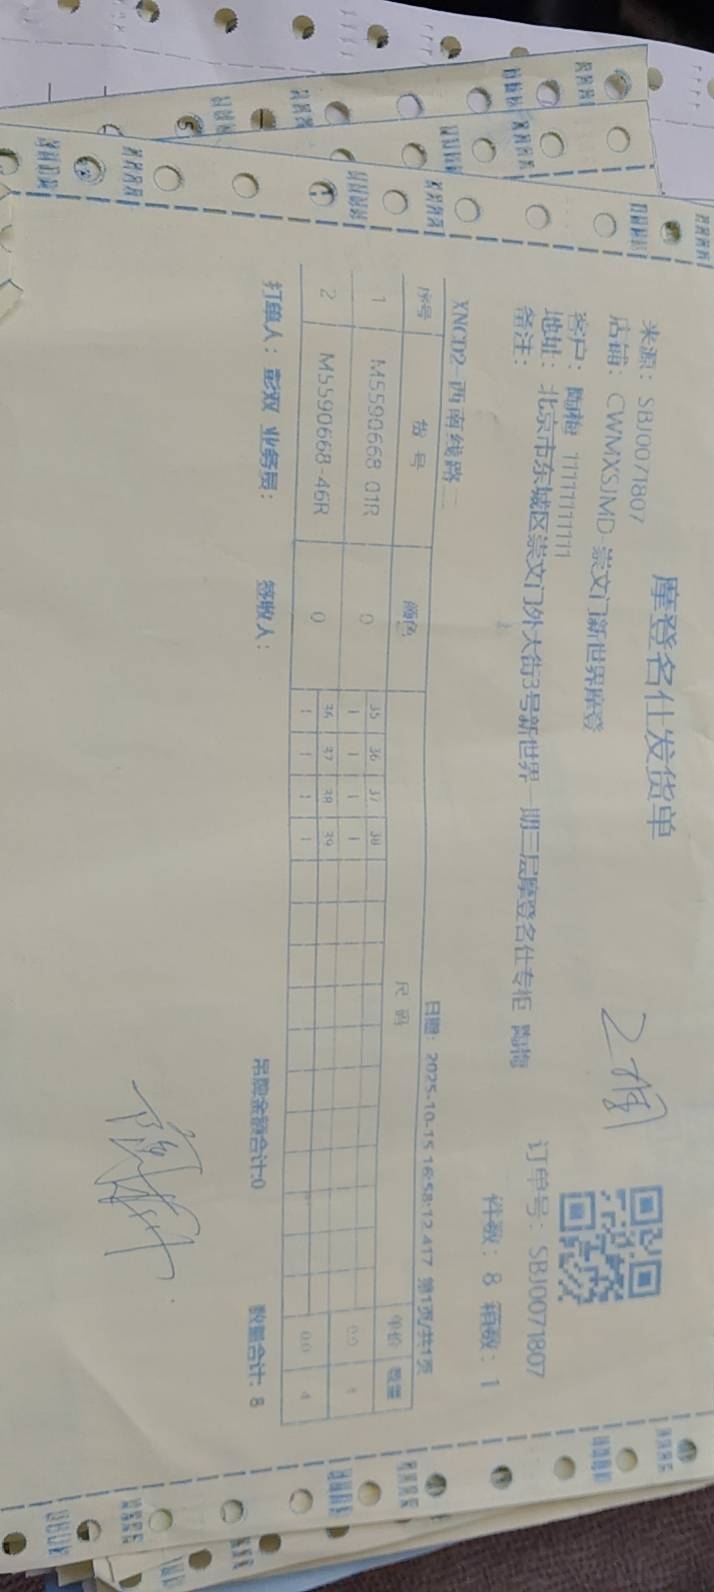 摩登名仕发货单
来源：SBJ0071807
订单号：SBJ0071807
店铺：CWMXSJMD-崇文门新世界摩登
客户：陶梅 11111111111
件数：8 箱数：1
地址：北京市东城区崇文门外大街3号新世界一期三层摩登名仕专柜 陶梅
备注：
XNCD2-西南线路二 日期：2025-10-15 16:58:12.417 第1页/共1页
序号 货号 颜色 尺码 单价 数量
1 M5590668-01R 0 35 36 37 38 0.0 4
1 1 1 1
2 M5590668-46R 0 36 37 38 39 0.0 4
1 1 1 1
打单人：彭双 业务员： 签收人： 吊牌金额合计:0 数量合计: 8